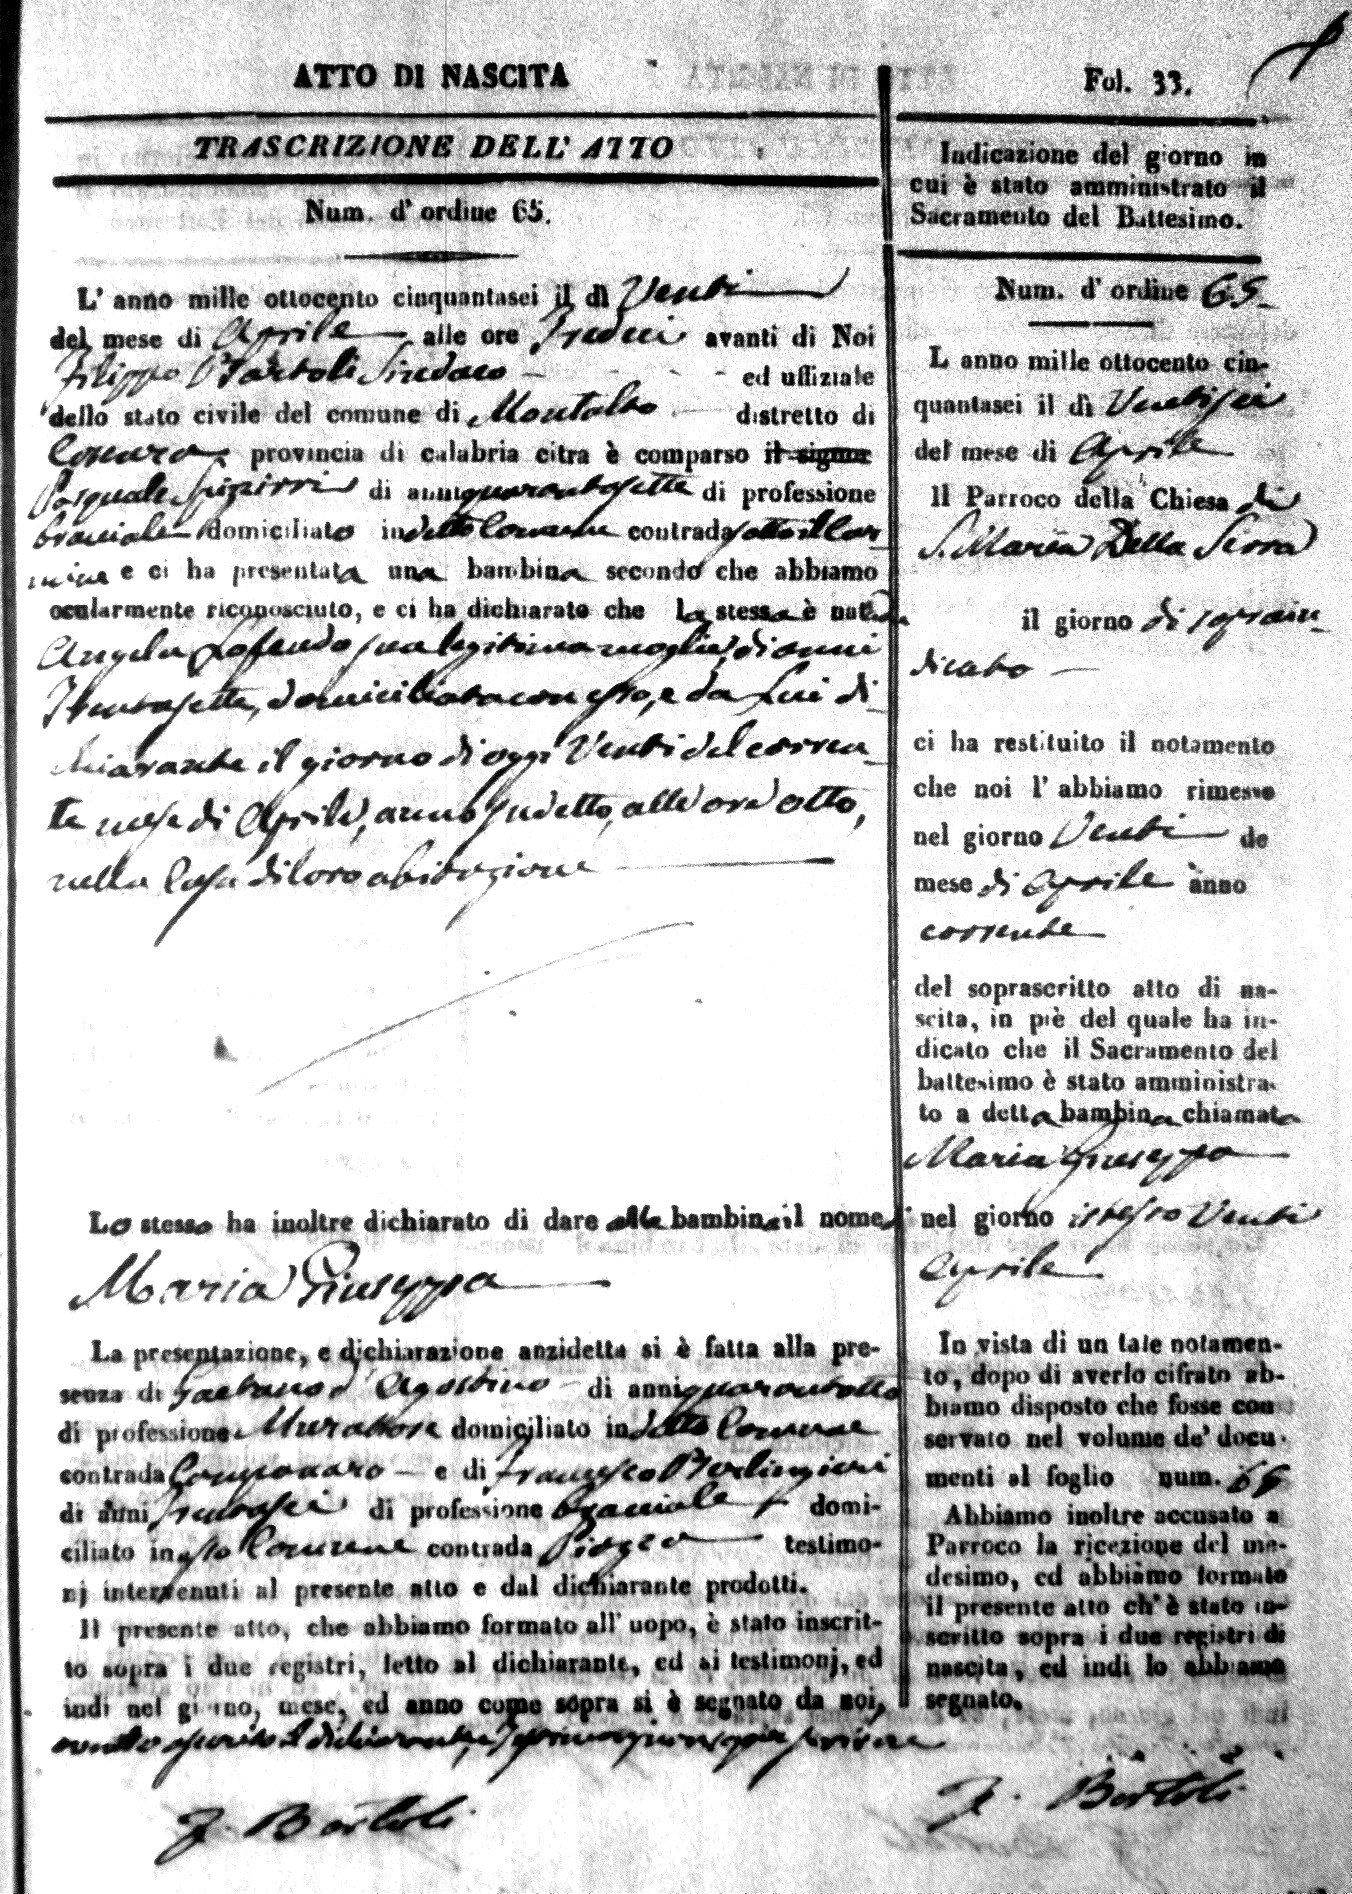 ATTO DI NASCITA
TRASCRIZIONE DELL' ATTO
Num. d' ordine 65.
L' anno mille ottocento cinquantasei il dì Venti
del mese di Aprile alle ore Tredici avanti di Noi
Filippo Bartoli Sindaco ed uffiziale
dello stato civile del comune di Montalto distretto di
Cosenza provincia di calabria citra è comparso il signor
Pasquale di anni quarantasette di professione
bracciale domiciliato in detto Comune contrada sotto il Car-
mine e ci ha presentata una bambina secondo che abbiamo
ocularmente riconosciuto, e ci ha dichiarato che la stessa è nata da
Angela sua legittima moglie, di anni
Trentasette, domiciliata con esso, e da Lui di-
chiarante il giorno di oggi Venti del corren-
te mese di Aprile, anno sudetto, alle ore otto,
nella Casa di loro abitazione
Lo stesso ha inoltre dichiarato di dare alla bambina il nome di
Maria Giuseppa
La presentazione, e dichiarazione anzidetta si è fatta alla pre-
senza di Gaetano d' Agostino di anni quarantotto
di professione Muratore domiciliato in detto Comune
contrada e di Francesco Berlingieri
di anni Trentasei di professione bracciale domi-
ciliato in esso Comune contrada testimo-
nj intervenuti al presente atto e dal dichiarante prodotti.
Il presente atto, che abbiamo formato all' uopo, è stato inscrit-
to sopra i due registri, letto al dichiarante, ed ai testimonj, ed
indi nel giorno, mese, ed anno come sopra si è segnato da noi,
avendo asserito il dichiarante, e testimoni non saper scrivere
F. Bartoli
Fol. 33.
Indicazione del giorno in
cui è stato amministrato il
Sacramento del Battesimo.
Num. d' ordine 65
L anno mille ottocento cin-
quantasei il dì Ventisei
del mese di Aprile
Il Parroco della Chiesa di
S. Maria Della Serra
il giorno di sopra in-
dicato
ci ha restituito il notamento
che noi l' abbiamo rimesso
nel giorno Venti de
mese di Aprile anno
corrente
del soprascritto atto di na-
scita, in piè del quale ha in-
dicato che il Sacramento del
battesimo è stato amministra-
to a detta bambina chiamata
Maria Giuseppa
nel giorno istesso Venti
Aprile
In vista di un tale notamen-
to, dopo di averlo cifrato ab-
biamo disposto che fosse con
servato nel volume de' docu-
menti al foglio num. 65
Abbiamo inoltre accusato a
Parroco la ricezione del me-
desimo, ed abbiamo formato
il presente atto ch' è stato in-
scritto sopra i due registri di
nascita, ed indi lo abbiamo
segnato.
F. Bartoli